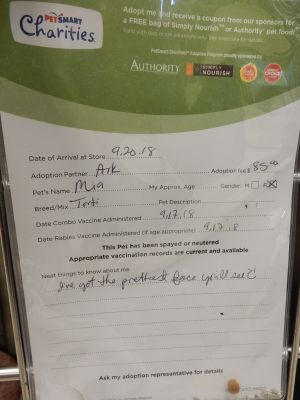 PETSMART
Charities
Adopt me and receive a coupon from our sponsors for
a FREE bag of Simply Nourish™ or Authority® pet food!
PetSmart Charities® Adoption Program proudly sponsored by:
AUTHORITY SIMPLY NOURISH
Date of Arrival at Store 9.20.18
Adoption Partner Ark Adoption fee $ 85.00
Pet's Name Mia My Approx. Age Gender: M F
Breed/Mix Torti Pet Description
Date Combo Vaccine Administered 9.17.18
Date Rabies Vaccine Administered (if age appropriate) 9.17.18
This Pet has been spayed or neutered
Appropriate vaccination records are current and available
Neat things to know about me
I've got the prettiest face you'll see!
Ask my adoption representative for details